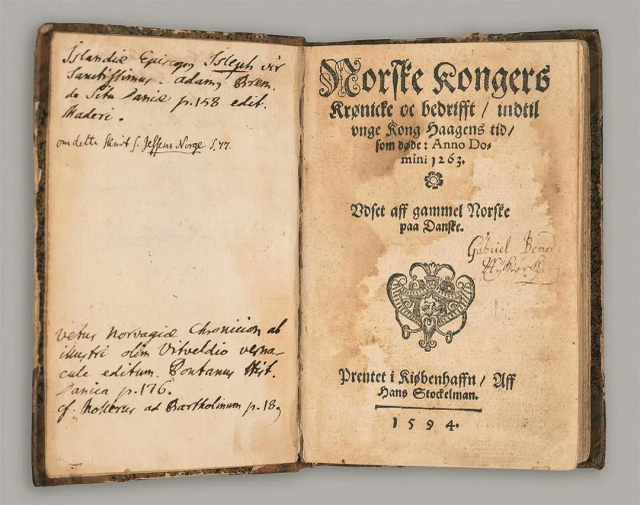 Islandiæ Episcopq Isleph vir
Sanctissimus. adamq Brem.
de Situ Daniæ p. 158 edit.
Maderi.
om dette skrivt s. Jessens Norge S. 77.
Vetus Norvagiæ Chronicion ab
illustri olim Vitveldio verna-
cule editum. Pontanus Hist.
Danica p. 176.
cf. Mollerus ad Bartholinum p. 18
Norske Kongers
Krønicke oc bedrifft / indtil
vnge Kong Haagens tid /
som døde: Anno Do-
mini 1263.
Vdset aff gammel Norske
paa Danske.
Gabriel
Prentet i Kiøbenhaffn / Aff
Hans Stockelman.
1594.